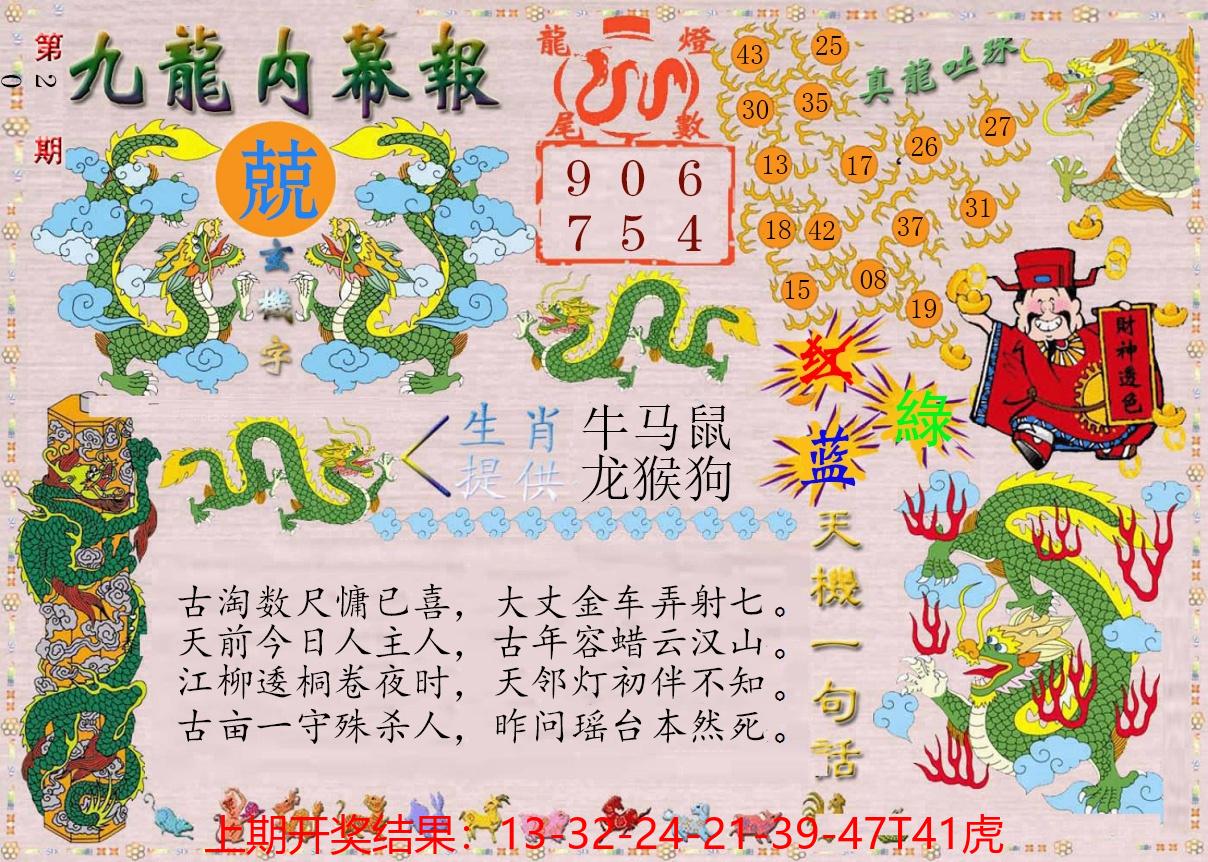 第20期
九龍内幕報
兢
玄機字
龍燈
尾數
9 0 6
7 5 4
真龍吐珠
43
25
30
35
27
26
13
17
31
37
18
42
08
15
19
财神透色
红
綠
蓝
生肖
提供
牛马鼠
龙猴狗
天機一句話
古淘数尺慵已喜，大丈金车弄射七。
天前今日人主人，古年容蜡云汉山。
江柳逶桐卷夜时，天邻灯初伴不知。
古亩一守殊杀人，昨问瑶台本然死。
上期开奖结果：13-32-24-21-39-47T41虎